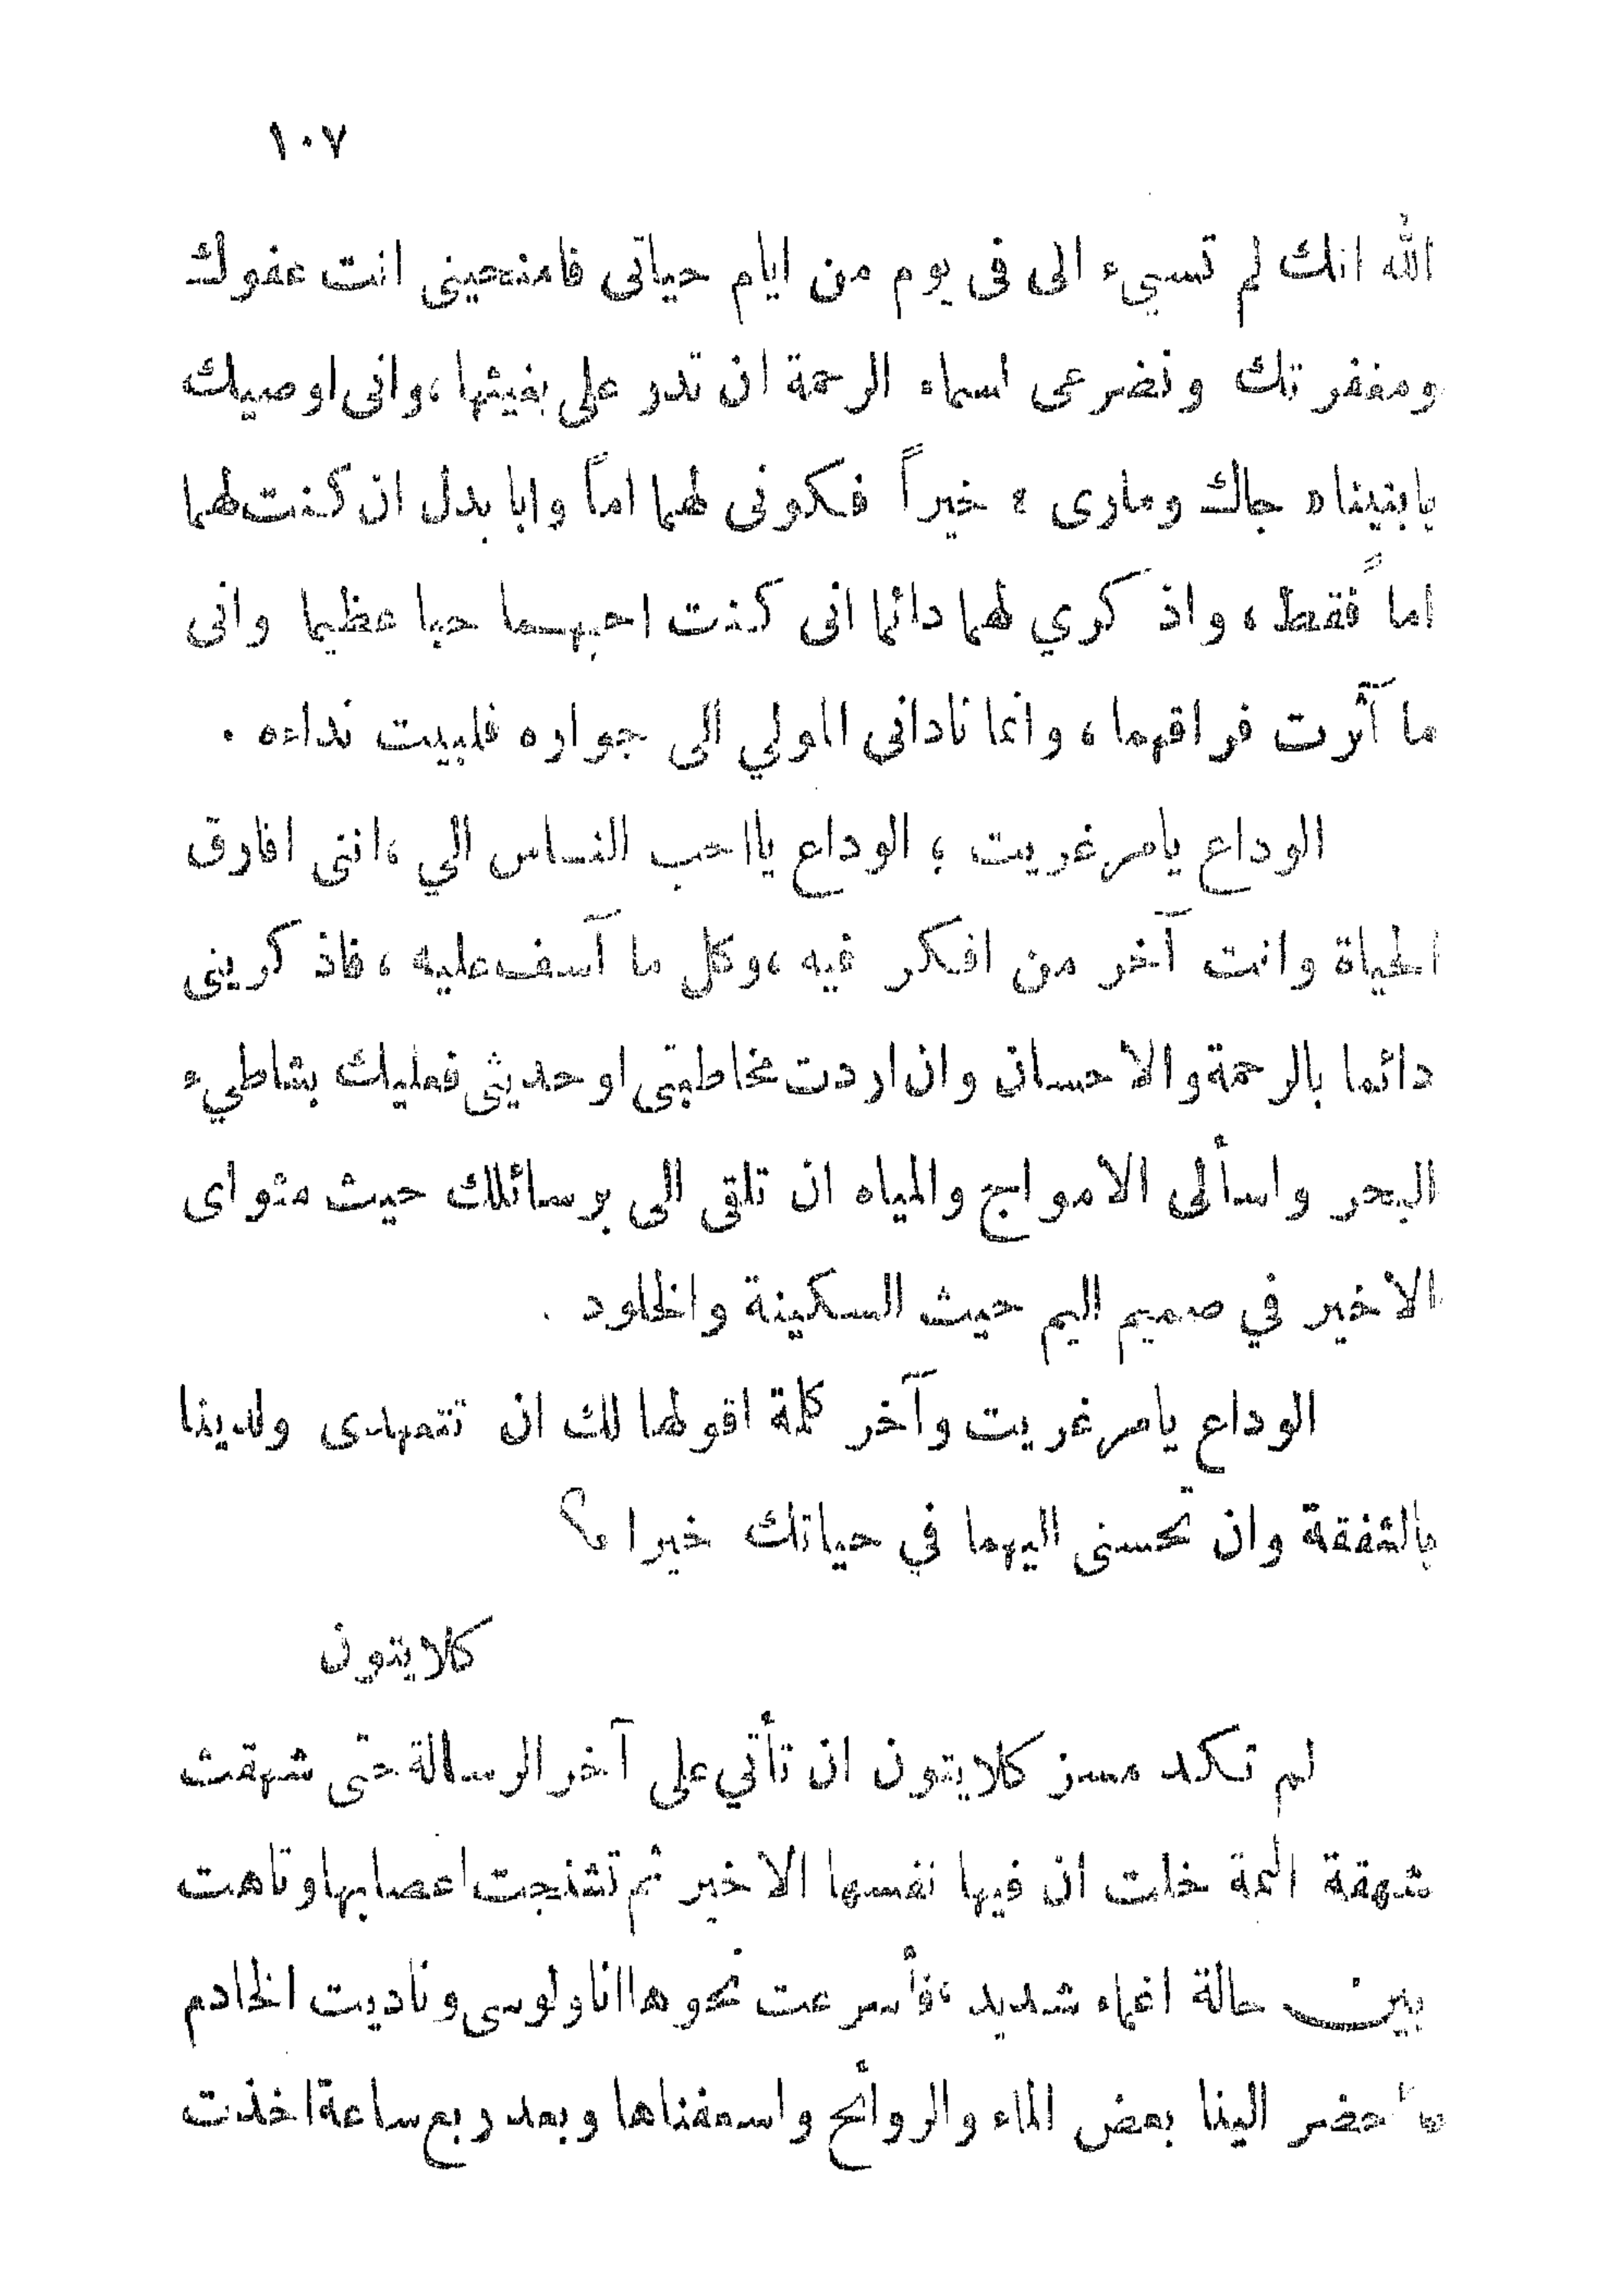 ١٠٧
الله انك لم تسيء الى فى يوم من ايام حياتى فامنحينى انت عفوك
ومغفرتك وتضرعى لسماء الرحمة ان تدر على بغيثها، وانى اوصيك
بابنينا « جاك ومارى » خيراً فكونى لهما اماً وابا بدل ان كنت لهما
اماً فقط، واذكري لهما دائما انى كنت احبهما حبا عظيما وانى
ما آثرت فراقهما، وانما نادانى المولي الى جواره فلبيت نداءه .
الوداع يامرغريت ؛ الوداع يااحب الناس الي ،اننى افارق
الحياة وانت آخر من افكر فيه ،وكل ما آسف عليه ، فاذكرينى
دائما بالرحمة والاحسان وان اردت مخاطبتى او حديثى فعليك بشاطيء
البحر واسألى الامواج والمياه ان تلقى الى برسائلك حيث مثواى
الاخير في صميم اليم حيث السكينة والخلود .
الوداع يامرغريت وآخر كلمة اقولها لك ان تتعهدى ولدينا
بالشفقة وان تحسنى اليهما في حياتك خيرا م؟
كلايتون
لم تكد مسز كلايتون ان تأتي على آخر الرسالة حتى شهقت
شهقة المة خلت ان فيها نفسها الاخير ثم تشنجت اعصابها وتاهت
بين حالة اغماء شديد ،فأسرعت نحوها انا ولوسى وناديت الخادم
فأحضر الينا بعض الماء والروائح واسعفناها وبعد ربع ساعة اخذت